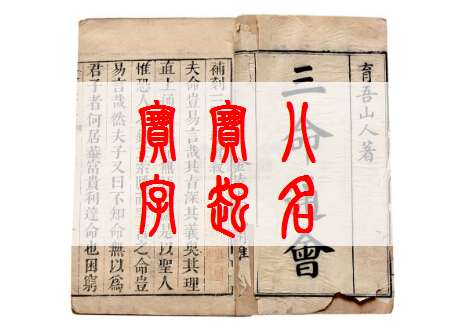 寶寶八
字起名
育吾山人著
三命通會
補刻三
夫命豈易言哉其旨深其義奧其理
直上通 是以聖人
惟恐人 之命豈
易言哉然夫子又曰不知命無以爲
君子者何居蓋富貴利達命也困窮